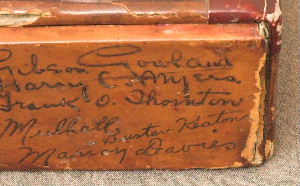 Gibson Gowland
Harry C. Myers
Frank O. Thornton
Mulhall Buster Keaton
Marion Davies